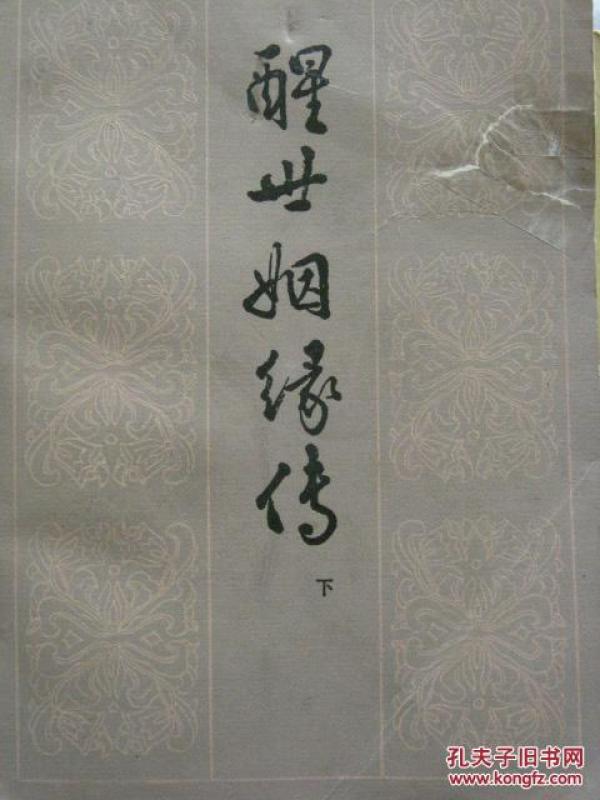 醒世姻缘传
下
孔夫子旧书网
www.kongfz.com